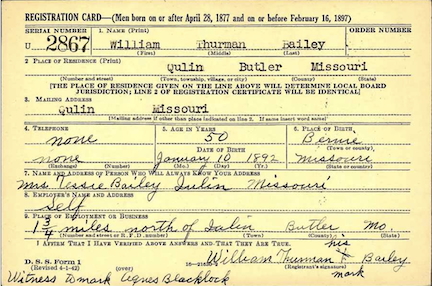 REGISTRATION CARD—(Men born on or after April 28, 1877 and on or before February 16, 1897)
SERIAL NUMBER 1. NAME (Print) ORDER NUMBER
U 2867 William Thurman Bailey
(First) (Middle) (Last)
2. PLACE OF RESIDENCE (Print)
Qulin Butler Missouri
(Number and street) (Town, township, village, or city) (County) (State)
[THE PLACE OF RESIDENCE GIVEN ON THE LINE ABOVE WILL DETERMINE LOCAL BOARD
JURISDICTION; LINE 2 OF REGISTRATION CERTIFICATE WILL BE IDENTICAL]
3. MAILING ADDRESS
Qulin Missouri
[Mailing address if other than place indicated on line 2. If same insert word same]
4. TELEPHONE 5. AGE IN YEARS 6. PLACE OF BIRTH
none 50 Bernie
DATE OF BIRTH
none January 10 1892 Missouri
(Exchange) (Number) (Mo.) (Day) (Yr.) (State or country)
7. NAME AND ADDRESS OF PERSON WHO WILL ALWAYS KNOW YOUR ADDRESS
Mrs. Tessie Bailey Qulin Missouri
8. EMPLOYER'S NAME AND ADDRESS
Self
9. PLACE OF EMPLOYMENT OR BUSINESS
1 3/4 miles north of Qulin Butler Mo.
(Number and street or R. F. D. number) (Town) (County) (State)
I AFFIRM THAT I HAVE VERIFIED ABOVE ANSWERS AND THAT THEY ARE TRUE.
his
D. S. S. Form 1 William Thurman X Bailey
(Revised 4-1-42) (over) (Registrant's signature) mark
Witness to mark Agnes Blacklock